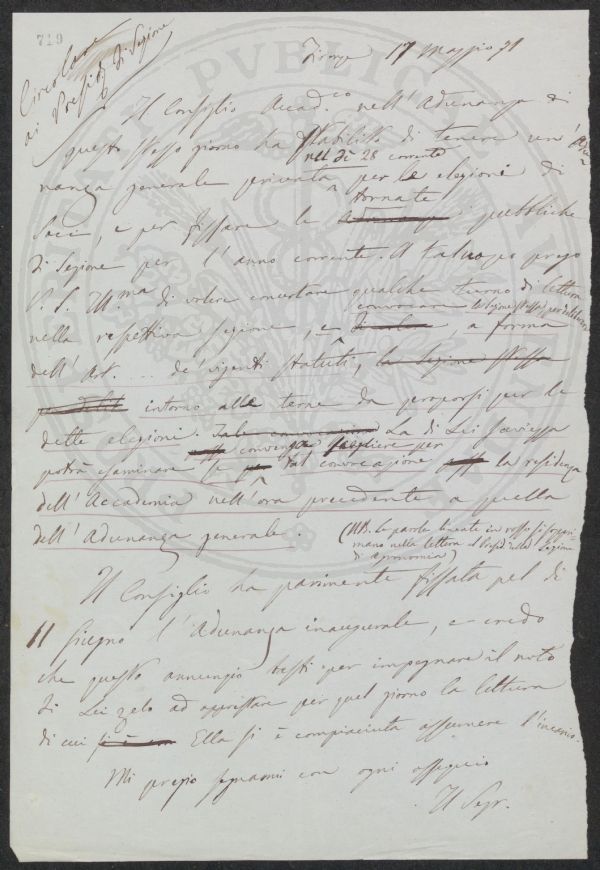 719
Circolare
ai Presidi di Sezione
Firenze 17 Maggio 71
Il Consiglio Accad.co nell'Adunanza di
questo stesso giorno ha stabilito di tenere un'Adu-
nel dì 28 corrente
nanza generale privata per le elezioni di
tornate
Soci, e per fissare le pubbliche
di Sezione per l'anno corrente. A tal uopo prego
V. S. Ill.ma di volere concertare qualche turno di lettura
convocare la Sezione stessa per deliberare
nella respettiva Sezione, e, a forma
dell'Art. ... de' vigenti Statuti, la Sezione stessa
per delib intorno alle terne da proporsi per le
dette elezioni. Tale convocazione La di Lei saviezza
convenga scegliere per
potrà esaminare se tal convocazione la residenza
dell'Accademia nell'ora precedente a quella
dell'Adunanza generale.
(NB. le parole lineate in rosso si soppri-
mano nella lettera al Presid. della Sezione
di Agronomia)
Il Consiglio ha parimente fissata pel dì
11 Giugno l'Adunanza inaugurale, e credo
che questo annunzio basti per impegnare il noto
di Lei zelo ad apprestare per quel giorno la lettura
di cui Ella si è compiaciuta assumere l'incarico.
Mi pregio segnarmi con ogni ossequio
Il Segr.